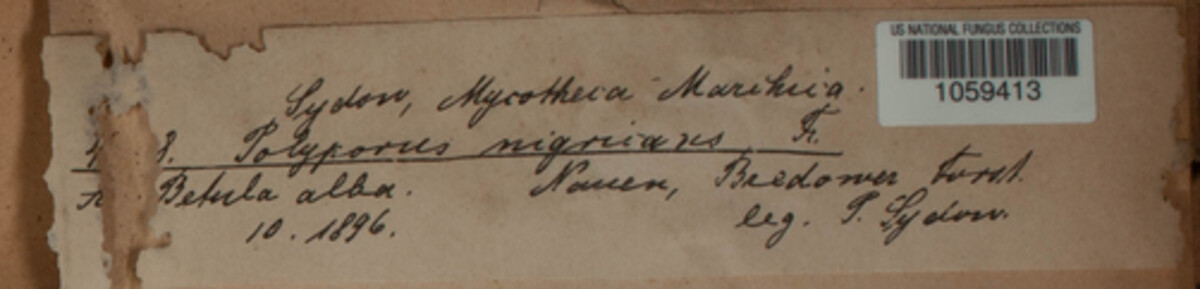 US NATIONAL FUNGUS COLLECTIONS
1059413
Sydow, Mycotheca Marchica.
8. Polyporus nigricans Fr.
Betula alba. Nauen, Bredower Forst.
10. 1896. leg. P. Sydow.